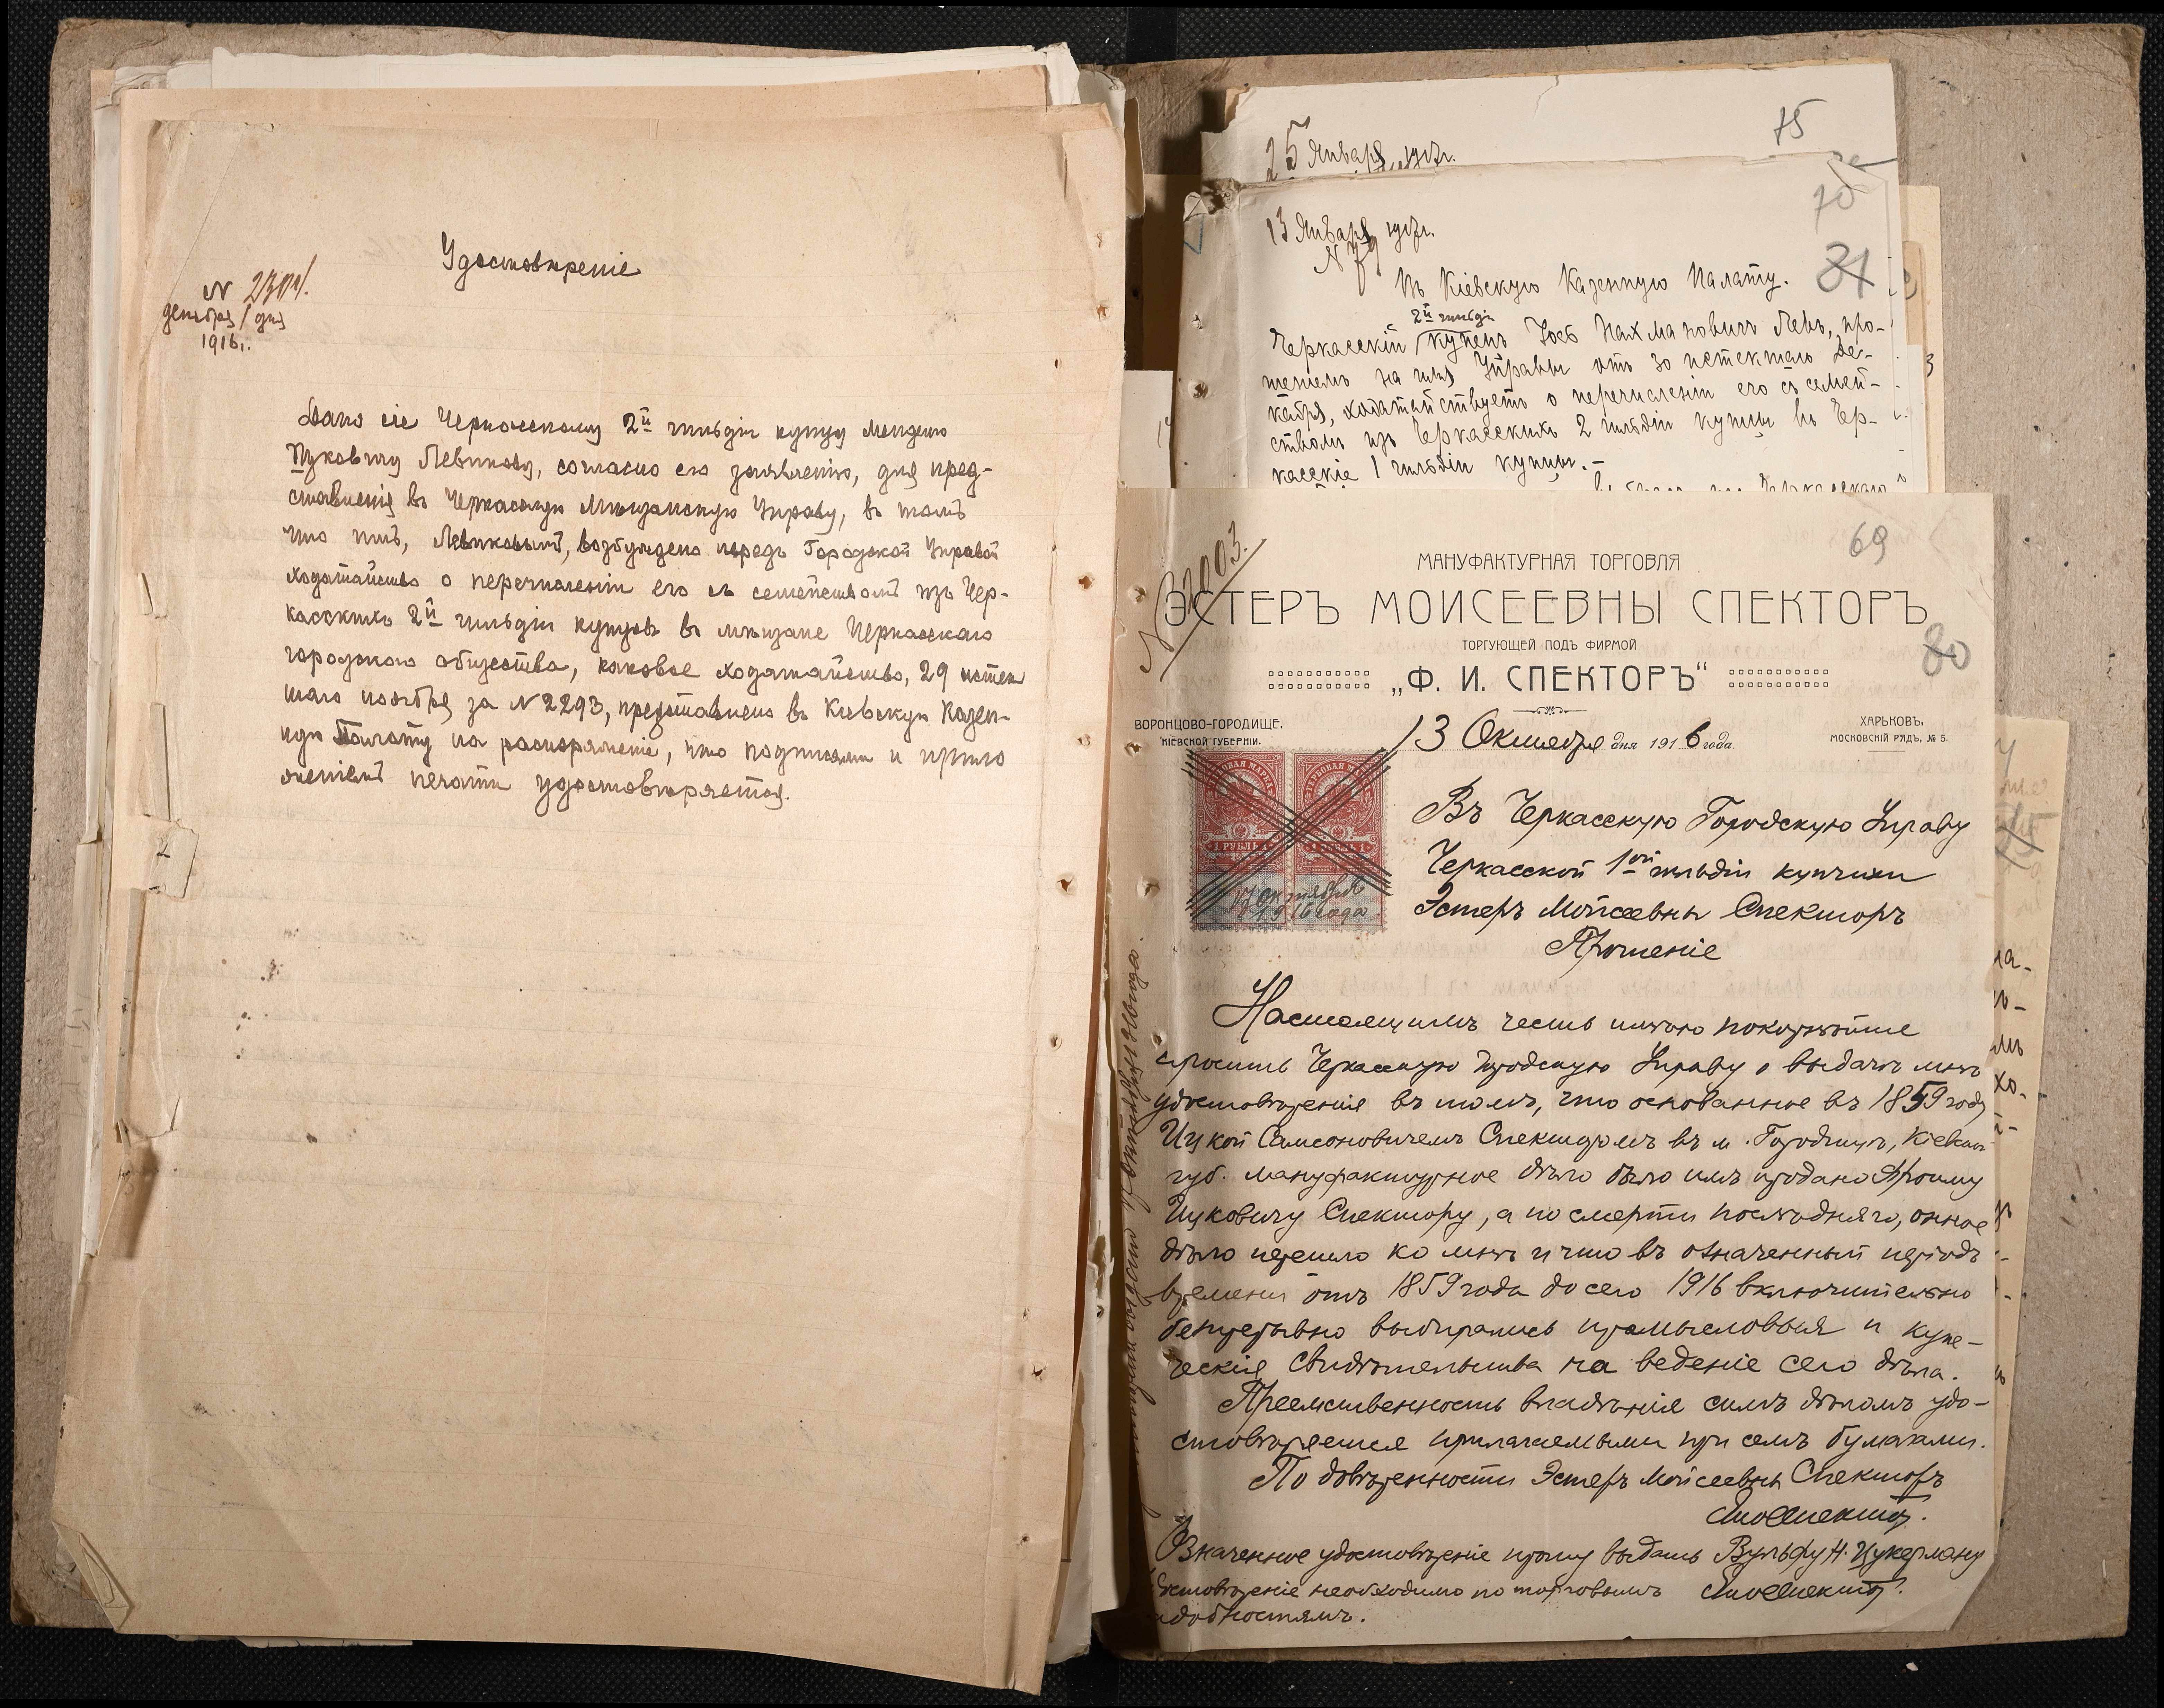 Удостовѣреніе
N 2304.
декабря 1 дня
1916 г.
Дано сіе Черкасскому 2й гильдіи купцу Менделю
Ицковичу Левикову, согласно его заявленію, для пред-
ставленія въ Черкасскую Мѣщанскую Управу, въ томъ
что имъ, Левиковымъ, возбуждено передъ Городской Управой
ходатайство о перечисленіи его съ семействомъ изъ Чер-
касскихъ 2й гильдіи купцовъ въ мѣщане Черкасскаго
городского общества, каковое ходатайство, 29 истек
шаго ноября за N 2293, представлено въ Кіевскую Казен-
ную Палату на распоряженіе, что подписями и прило
женіемъ печати удостовѣряется.
25 Января 1917 г.
75
13 Января 1917 г.
N 79
70
81
Въ Кіевскую Казенную Палату.
2й гильдіи
Черкасскій купецъ Іось Нахмановичъ Левъ, про-
шеніемъ на имя Управы отъ 30 истекшаго Де-
кабря, ходатайствуетъ о перечисленіи его съ семей-
ствомъ изъ Черкасскихъ 2 гильдіи купцы въ Чер-
касскіе 1 гильдіи купцы.-
69
80
N 2003.
МАНУФАКТУРНАЯ ТОРГОВЛЯ
ЭСТЕРЪ МОИСЕЕВНЫ СПЕКТОРЪ
ТОРГУЮЩЕЙ ПОДЪ ФИРМОЙ
„Ф. И. СПЕКТОРЪ“
ВОРОНЦОВО-ГОРОДИЩЕ,
КІЕВСКОЙ ГУБЕРНІИ.
13 Октября дня 1916 года.
ХАРЬКОВЪ,
МОСКОВСКІЙ РЯДЪ, № 5.
1 РУБЛЬ 1
1 РУБЛЬ 1
17 октября
1916 года
Въ Черкасскую Городскую Управу
Черкасской 1ой гильдіи купчихи
Эстеръ Мойсеевны Спекторъ
Прошеніе
Настоящимъ честь имѣю покорнѣйше
просить Черкасскую Городскую Управу о выдачѣ мнѣ
удостовѣренія въ томъ, что основанное въ 1859 году
Ицкой Самсоновичемъ Спекторомъ въ м. Городищѣ, Кіевской
губ. мануфактурное дѣло было имъ продано Фроиму
Ицковичу Спектору, а по смерти послѣдняго, оное
дѣло перешло ко мнѣ и что въ означенный періодъ
времени отъ 1859 года до сего 1916 включительно
безпрерывно выбирались промысловыя и купе-
ческія свидѣтельства на веденіе сего дѣла.
Преемственность владѣнія симъ дѣломъ удо-
стовѣряется прилагаемыми при семъ бумагами.
По довѣренности Эстеръ Мойсеевны Спекторъ
Означенное удостовѣреніе прошу выдать Вульфу Н. Цукерману
Удостовѣреніе необходимо по торговымъ
надобностямъ.